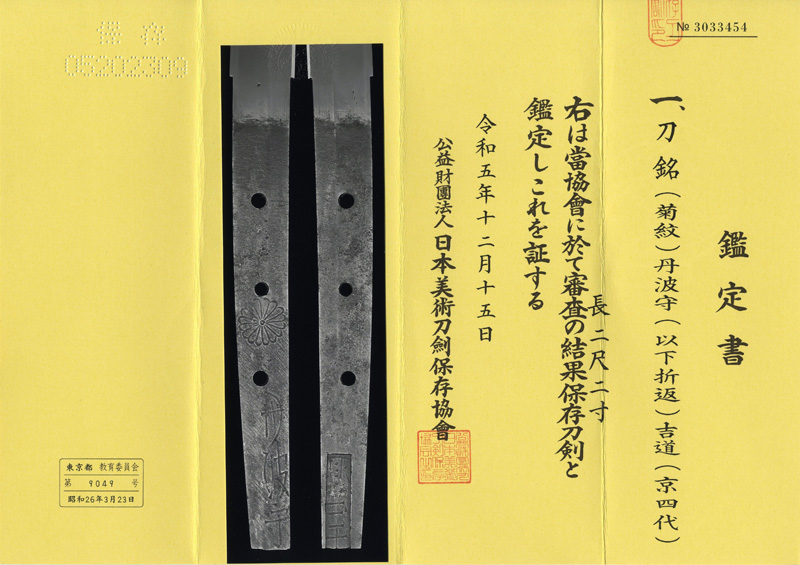 № 3033454
鑑定書
一、刀 銘（菊紋）丹波守（以下折返）吉道（京四代）
長二尺二寸
右は當協會に於て審査の結果保存刀剣と
鑑定しこれを証する
令和五年十二月十五日
公益財團法人日本美術刀劍保存協會
保存
05202309
丹波守
東京都 教育委員会
第 9049 号
昭和26年3月23日